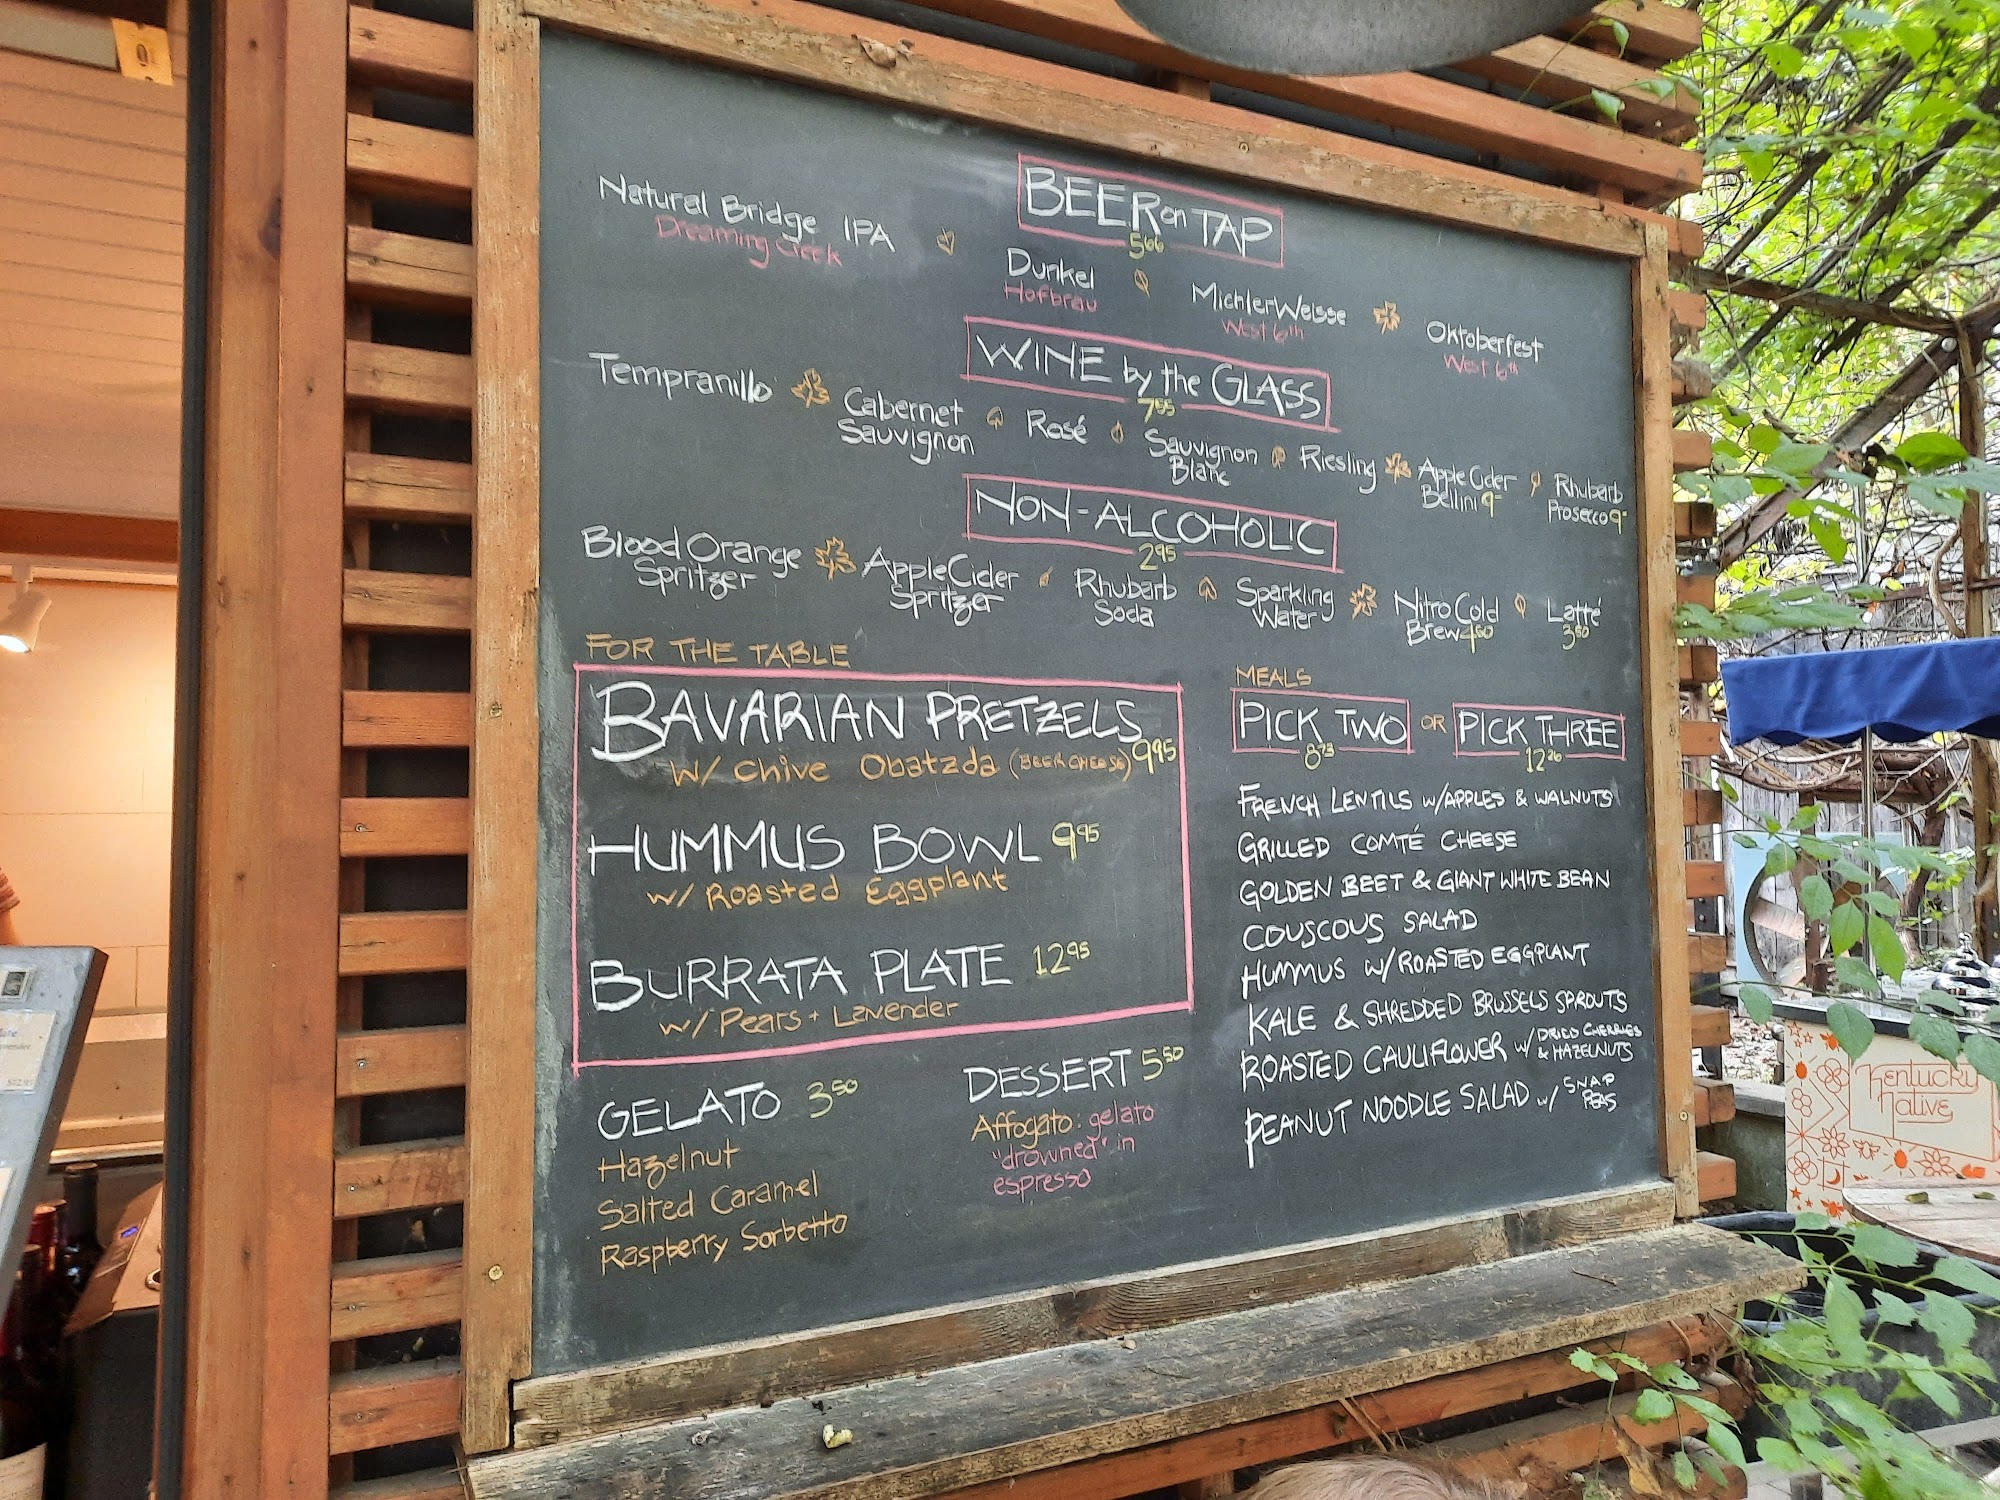 BEER on TAP
5 66
Natural Bridge IPA
Dreaming Creek
Dunkel
Hofbrau
MichlerWeisse
West 6th
Oktoberfest
West 6th
WINE by the GLASS
7 55
Tempranillo
Cabernet
Sauvignon
Rosé
Sauvignon
Blanc
Riesling
Apple Cider
Bellini 9
Rhubarb
Prosecco 9
NON-ALCOHOLIC
2 95
Blood Orange
Spritzer
Apple Cider
Spritzer
Rhubarb
Soda
Sparkling
Water
Nitro Cold
Brew 4 50
Latté
3 50
FOR THE TABLE
BAVARIAN PRETZELS
w/ Chive Obatzda (BEER CHEESE) 9 95
HUMMUS BOWL 9 95
w/ Roasted Eggplant
BURRATA PLATE 12 95
w/ Pears + Lavender
GELATO 3 50
Hazelnut
Salted Caramel
Raspberry Sorbetto
DESSERT 5 50
Affogato: gelato
"drowned" in
espresso
MEALS
PICK TWO OR PICK THREE
8 73 12 26
FRENCH LENTILS w/APPLES & WALNUTS
GRILLED COMTÉ CHEESE
GOLDEN BEET & GIANT WHITE BEAN
COUSCOUS SALAD
HUMMUS W/ROASTED EGGPLANT
KALE & SHREDDED BRUSSELS SPROUTS
ROASTED CAULIFLOWER w/ DRIED CHERRIES
& HAZELNUTS
PEANUT NOODLE SALAD w/ SNAP
PEAS
Kentucky
Native